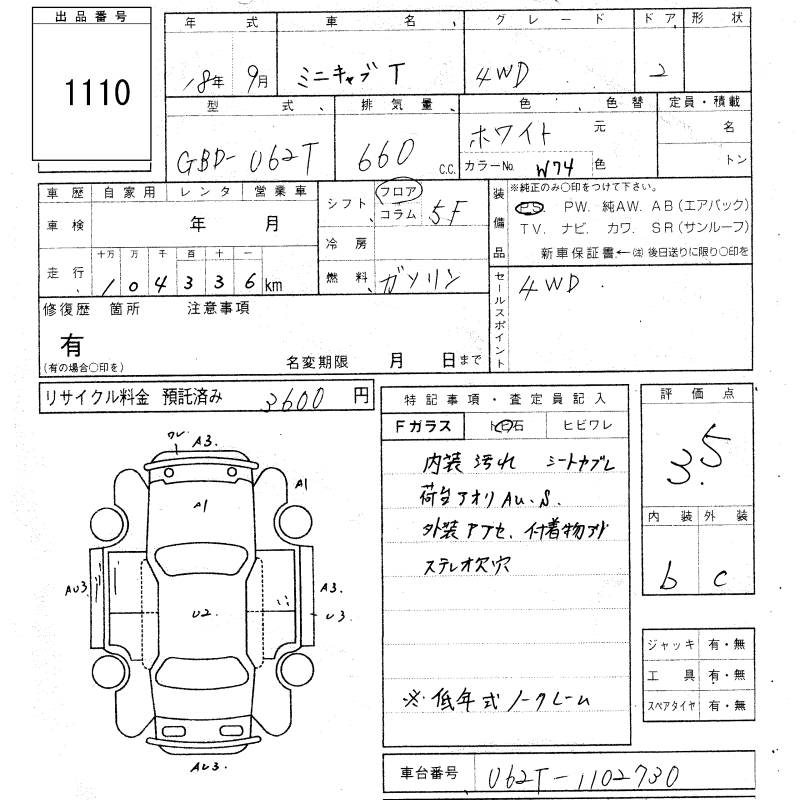 出品番号
1110
年式 車名 グレード ドア 形状
18年 9月 ミニキャブT 4WD 2
型式 排気量 色 色替 定員・積載
GBD-U62T 660 c.c. ホワイト 元 名
カラーNo. W74 色 トン
車歴 自家用 レンタ 営業車
車検 年 月
走行 十万 万 千 百 十 一
1 0 4 3 3 6 km
シフト フロア コラム 5F
冷房
燃料 ガソリン
装備品
※純正のみ○印をつけて下さい。
P.S. PW. 純AW. AB(エアバック)
TV. ナビ. カワ. SR(サンルーフ)
新車保証書←㊟後日送りに限り○印を
セールスポイント
4WD
修復歴 箇所 注意事項
有
(有の場合○印を)
名変期限 月 日まで
リサイクル料金 預託済み 3600 円
特記事項・査定員記入
Fガラス 石 ヒビワレ
内装 汚れ シートヤブレ
荷台アオリ AU.S.
外装 付着物
ステレオ欠穴
※低年式ノークレーム
評価点
3.5
内装 外装
b c
ジャッキ 有・無
工具 有・無
スペアタイヤ 有・無
車台番号 U62T-1102730
ワレ A3.
A1
A1
AU3
U2.
A3.
U3
AU3.